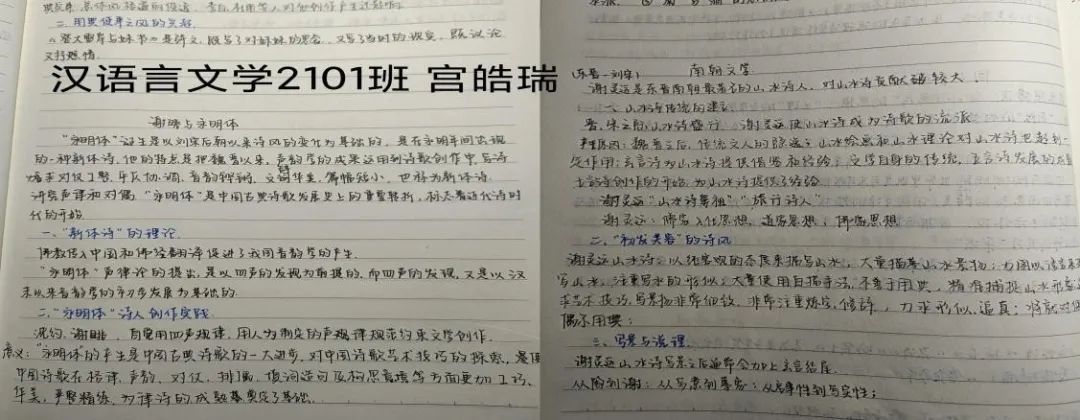 二、用典使事之风的兴起
《登大雷岸与妹书》是诗文，既写了对妹妹的思念，又写了当时的现实，既议论
又抒燃情
汉语言文学2101班 宫皓瑞
谢眺与永明体
"永明体"诞生是以刘宋后期以来诗风的变化为基础的，是在永明年间出现
的一种新体诗，他的特点是把魏晋以来，声韵学的成果运用到诗歌创作中，写诗
讲求对仗工整，平仄协调，音韵铿锵，文词华美，篇幅短小，也称为新体诗
讲究声律和对偶 "永明体"是中国古典诗歌发展史上的重要转折，标志着近代诗时
代的开始
一、"新体诗"的理论
佛教传入中国和佛经翻译促进了我国音韵学的产生
"永明体"声律论的提出，是以四声的发现为前提的，而四声的发现，又是以汉
末以来音韵学的初步发展为基础的
二、"永明体"诗人创作实践
沈约、谢眺 自觉用四声规律，用人为制定的声规律规范约束文学创作
意义："永明体的产生是中国古典诗歌的一大进步，对中国诗歌艺术技巧的探索，
中国诗歌在格律，声韵，对仗，排偶，遣词造句及构思意境等方面更加工巧、
华美，严整精练，为律诗的成熟奠定了基础
(东晋—刘宋) 南朝文学
谢灵运是东晋南朝最著名的山水诗人，对山水诗贡献较大
一、山水诗传统的建立
晋、宋之际山水诗盛行 谢灵运使山水诗成为诗歌的流派
原因：魏晋之后，传统文人的隐逸；山水绘画和山水理论对山水诗也起到一
定作用；玄言诗为山水诗提供借鉴和经验；文学自身的传统，玄言诗发展的
诗创作的开始为山水诗提供了经验
谢灵运"山水诗鼻祖" "旅行诗人"
谢灵运：儒家入仕思想，道家思想，佛家思想
二、"初发芙蓉"的诗风
谢灵运山水诗，以纯客观的态度来描写山水，大量描摹山水景物；
写山水，注重写水的形似；大量使用白描手法，不善于用典，精确捕捉山水形象
艺术技巧，写景物非常细致，非常注重炼字，修辞，力求形似，逼真；
偶尔用典；
三、写景与说理
谢灵运山水诗写景之后通常会加上玄言结尾
从陶到谢：从写意到摹象；从启事性到写实性；